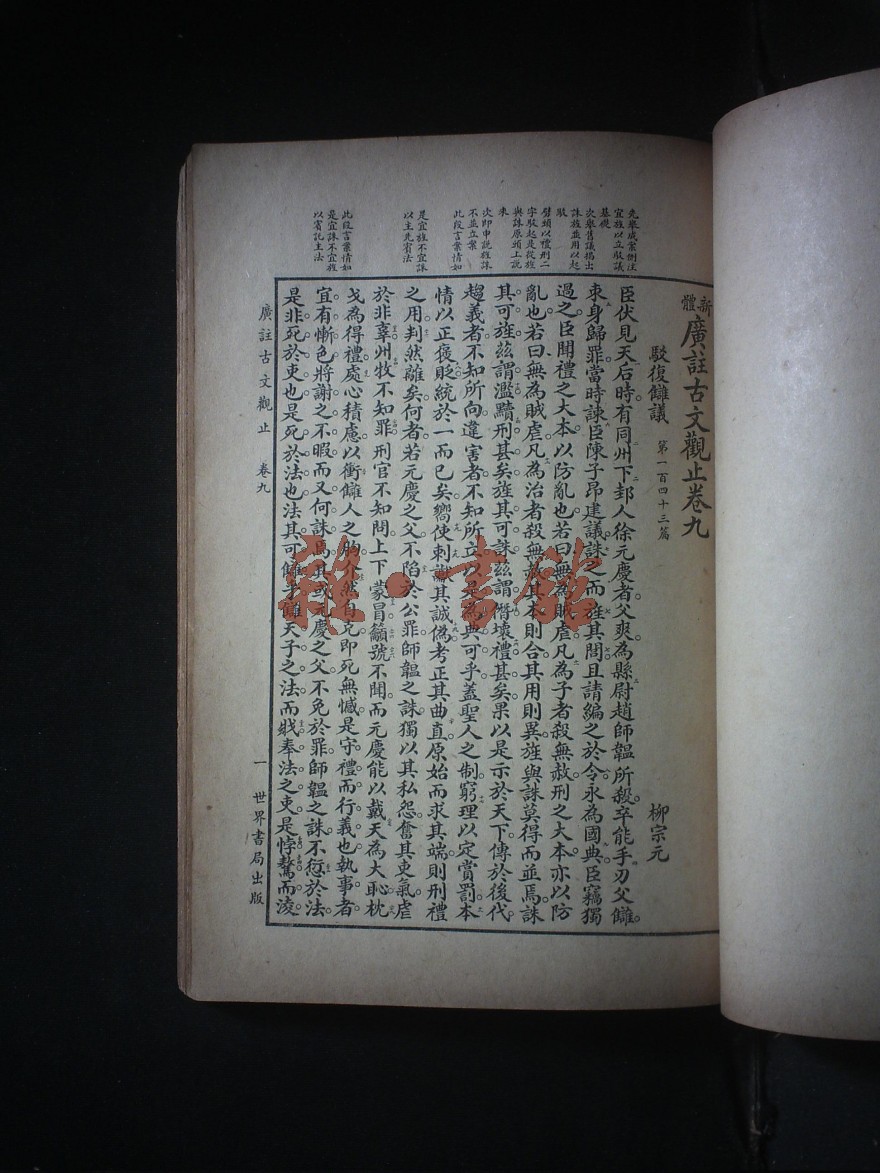 新體廣註古文觀止卷九
駁復讎議 第一百四十三篇 柳宗元
臣伏見天后時有同州下邽人徐元慶者父爽為縣尉趙師韞所殺卒能手刃父讎
束身歸罪當時諫臣陳子昂建議誅之而旌其閭且請編之於令永為國典臣竊獨
過之臣聞禮之大本以防亂也若曰無為賊虐凡為子者殺無赦刑之大本亦以防
亂也若曰無為賊虐凡為治者殺無赦其本則合其用則異旌與誅莫得而並焉誅
其可旌茲謂濫黷刑甚矣旌其可誅茲謂僭壞禮甚矣果以是示於天下傳於後代
趨義者不知所向違害者不知所立以是為典可乎蓋聖人之制窮理以定賞罰本
情以正褒貶統於一而已矣嚮使刺讞其誠偽考正其曲直原始而求其端則刑禮
之用判然離矣何者若元慶之父不陷於公罪師韞之誅獨以其私怨奮其吏氣虐
於非辜州牧不知罪刑官不知問上下蒙冒籲號不聞而元慶能以戴天為大恥枕
戈為得禮處心積慮以衝讎人之胸介然自克即死無憾是守禮而行義也執事者
宜有慚色將謝之不暇而又何誅焉其或元慶之父不免於罪師韞之誅不愆於法
是非死於吏也是死於法也法其可讎乎讎天子之法而戕奉法之吏是悖驁而淩
先舉成案側注
宜旌以立駁議
基礎
次舉舊議揭出
誅旌並用以起
駁
劈頭以禮刑二
字駁起是從旌
與誅原頭上說
來
次即申說旌誅
不並立案
此段言案情如
是宜旌不宜誅
以主先賓法
此段言案情如
是宜誅不宜旌
以賓託主法
廣註古文觀止 卷九 一 世界書局出版
雜·書旌